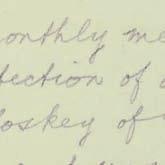 onthly me
tection of
loskey of